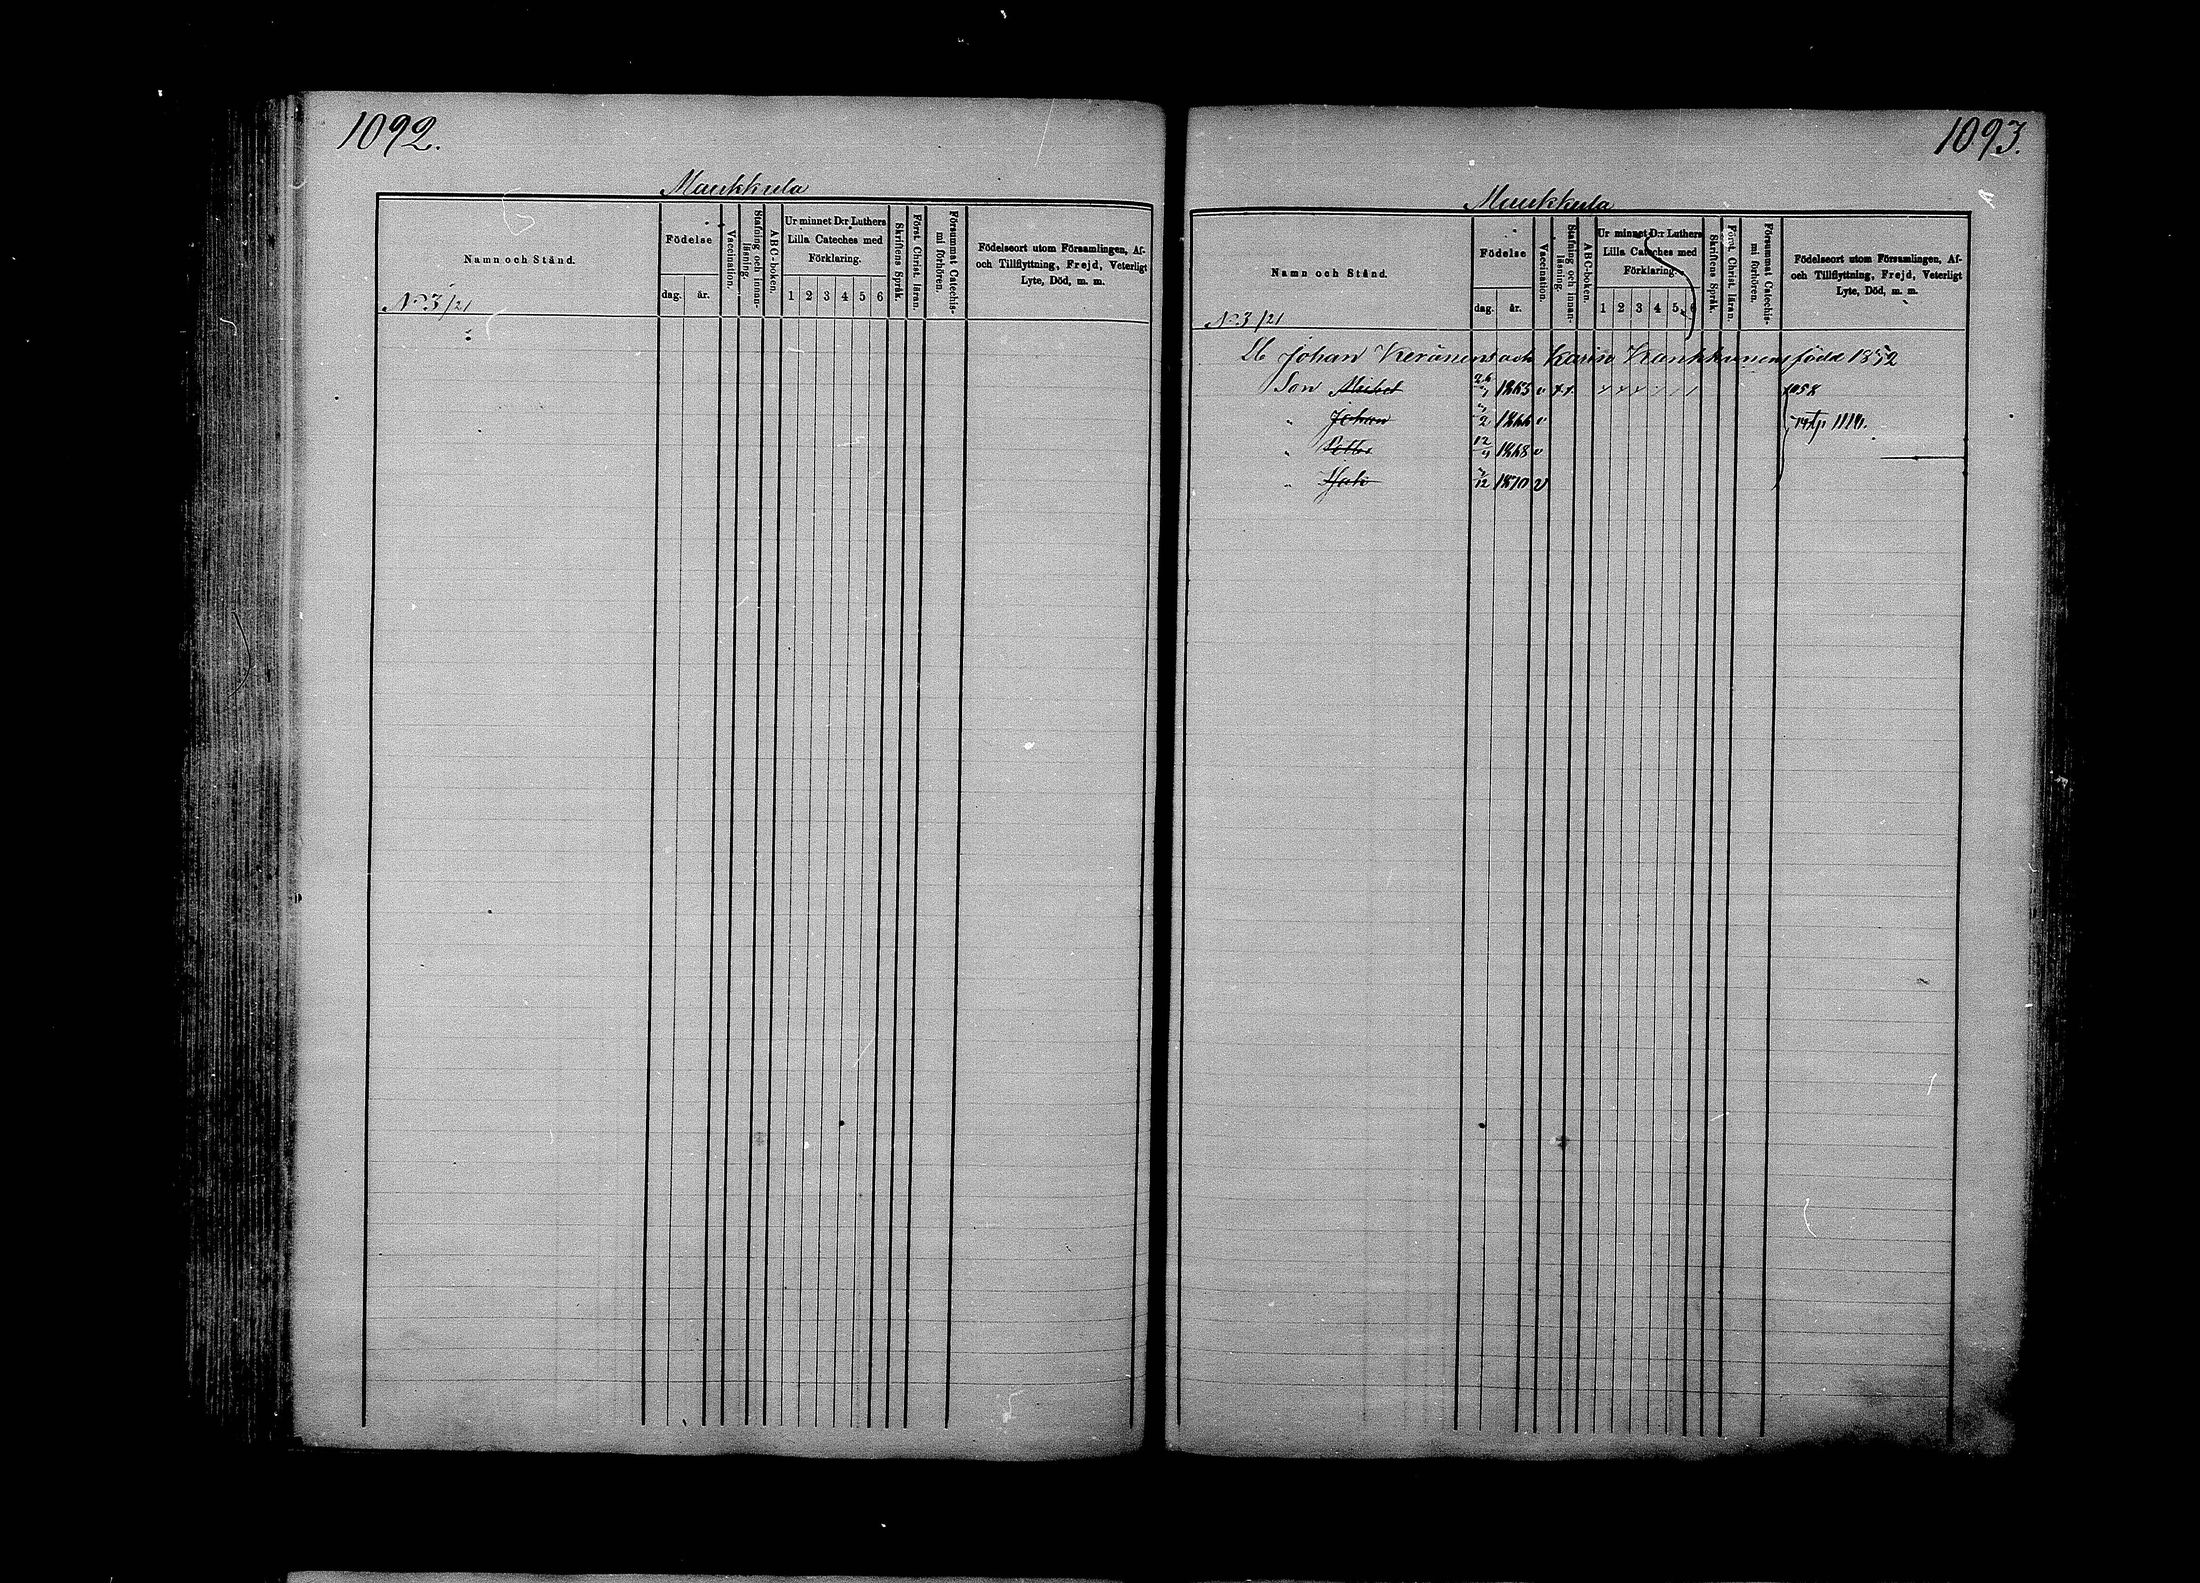 1092.
Maukkula
Namn och Stånd.
Födelse
dag. år.
Vaccination.
Stafning och innan-läsning.
ABC-boken.
Ur minnet D:r Luthers
Lilla Cateches med
Förklaring.
1 2 3 4 5 6
Skriftens Språk.
Först. Christ. läran.
Försummat Catechis-mi förhören.
Födelseort utom Församlingen, Af-
och Tillflyttning, Frejd, Veterligt
Lyte, Död, m. m.
No 3/21
1093.
Maukkula
Namn och Stånd.
Födelse
dag. år.
Vaccination.
Stafning och innan-läsning.
ABC-boken.
Ur minnet D:r Luthers
Lilla Cateches med
Förklaring.
1 2 3 4 5 6
Skriftens Språk.
Först. Christ. läran.
Försummat Catechis-mi förhören.
Födelseort utom Församlingen, Af-
och Tillflyttning, Frejd, Veterligt
Lyte, Död, m. m.
No 3/21
Johan Keränens och Karin född 1852
Son 1865 v
" Johan 1866 v
" 12 1868 v
" 12 1870 v